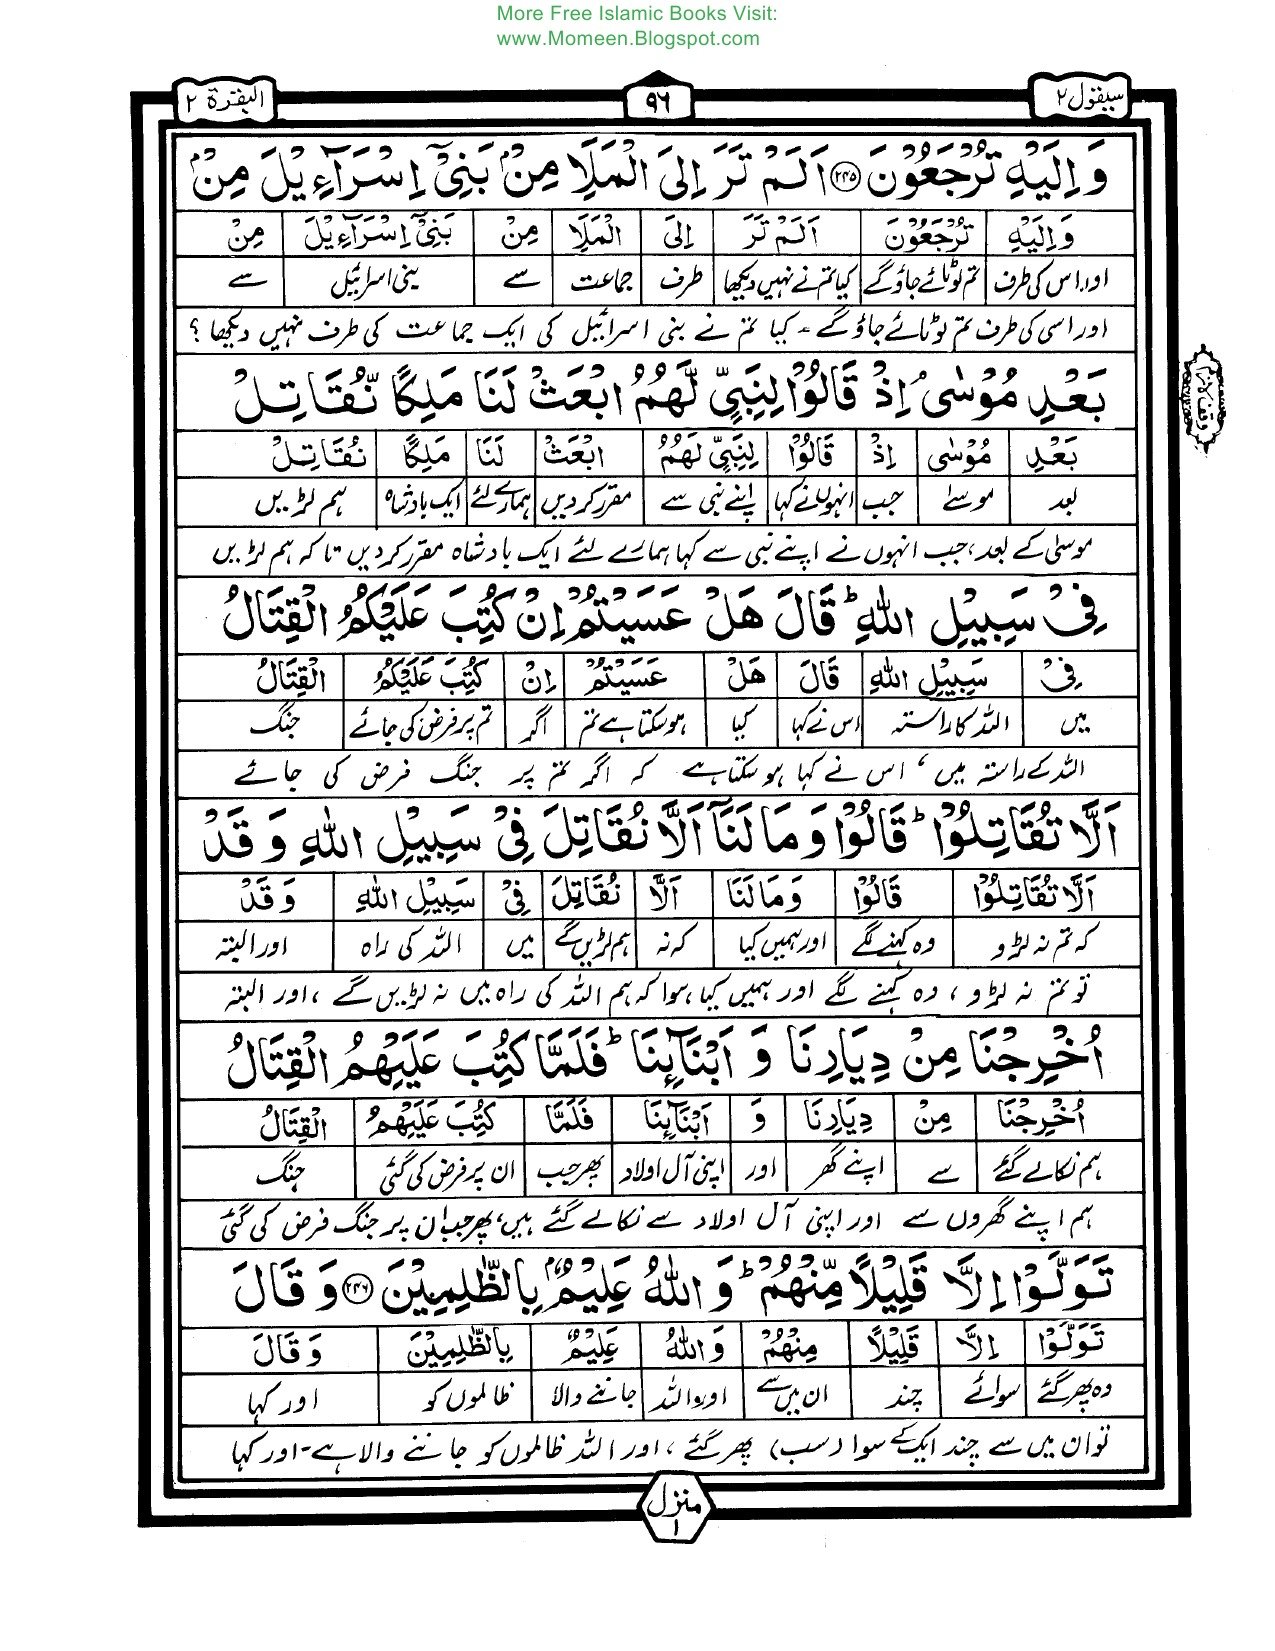 More Free Islamic Books Visit:
www.Momeen.Blogspot.com
سيقول ٢ ٩٦ البقرة ٢
وَ اِلَيْهِ تُرْجَعُوْنَ ۲۴۵ اَلَمْ تَرَ اِلَى الْمَلَاِ مِنْۢ بَنِيْٓ اِسْرَآءِيْلَ مِنْۢ
وَ اِلَيْهِ تُرْجَعُوْنَ اَلَمْ تَرَ اِلَى الْمَلَاِ مِنْ بَنِيْٓ اِسْرَآءِيْلَ مِنْ
اور اس کی طرف تم لوٹائے جاؤ گے کیا تم نے نہیں دیکھا طرف جماعت سے بنی اسرائیل سے
اور اسی کی طرف تم لوٹائے جاؤ گے - کیا تم نے بنی اسرائیل کی ایک جماعت کی طرف نہیں دیکھا ؟
بَعْدِ مُوْسٰىۘ اِذْ قَالُوْا لِنَبِيٍّ لَّهُمُ ابْعَثْ لَنَا مَلِكًا نُّقَاتِلْ
بَعْدِ مُوْسٰى اِذْ قَالُوْا لِنَبِيٍّ لَهُمُ ابْعَثْ لَنَا مَلِكًا نُقَاتِلْ
بعد موسےٰ جب انہوں نے کہا اپنے نبی سے مقرر کر دیں ہمارے لئے ایک بادشاہ ہم لڑیں
موسیٰ کے بعد، جب انہوں نے اپنے نبی سے کہا ہمارے لئے ایک بادشاہ مقرر کر دیں تا کہ ہم لڑیں
فِيْ سَبِيْلِ اللّٰهِ ؕ قَالَ هَلْ عَسَيْتُمْ اِنْ كُتِبَ عَلَيْكُمُ الْقِتَالُ
فِيْ سَبِيْلِ اللّٰهِ قَالَ هَلْ عَسَيْتُمْ اِنْ كُتِبَ عَلَيْكُمُ الْقِتَالُ
میں اللہ کا راستہ اس نے کہا کیا ہو سکتا ہے تم اگر تم پر فرض کی جائے جنگ
اللہ کے راستہ میں ، اس نے کہا ہو سکتا ہے کہ اگر تم پر جنگ فرض کی جائے
اَلَّا تُقَاتِلُوْا ؕ قَالُوْا وَ مَا لَنَآ اَلَّا نُقَاتِلَ فِيْ سَبِيْلِ اللّٰهِ وَ قَدْ
اَلَّا تُقَاتِلُوْا قَالُوْا وَ مَا لَنَا اَلَّا نُقَاتِلَ فِيْ سَبِيْلِ اللّٰهِ وَ قَدْ
کہ تم نہ لڑو وہ کہنے لگے اور ہمیں کیا کہ نہ ہم لڑیں گے میں اللہ کی راہ اور البتہ
تو تم نہ لڑو ، وہ کہنے لگے اور ہمیں کیا ہوا کہ ہم اللہ کی راہ میں نہ لڑیں گے ، اور البتہ
اُخْرِجْنَا مِنْ دِيَارِنَا وَ اَبْنَآئِنَا ؕ فَلَمَّا كُتِبَ عَلَيْهِمُ الْقِتَالُ
اُخْرِجْنَا مِنْ دِيَارِنَا وَ اَبْنَآئِنَا فَلَمَّا كُتِبَ عَلَيْهِمُ الْقِتَالُ
ہم نکالے گئے سے اپنے گھر اور اپنی آل اولاد پھر جب ان پر فرض کی گئی جنگ
ہم اپنے گھروں سے اور اپنی آل اولاد سے نکالے گئے ہیں، پھر جب ان پر جنگ فرض کی گئی
تَوَلَّوْا اِلَّا قَلِيْلًا مِّنْهُمْ ؕ وَ اللّٰهُ عَلِيْمٌۢ بِالظّٰلِمِيْنَ ۲۴۶ وَ قَالَ
تَوَلَّوْا اِلَّا قَلِيْلًا مِنْهُمْ وَ اللّٰهُ عَلِيْمٌ بِالظّٰلِمِيْنَ وَ قَالَ
وہ پھر گئے سوائے چند ان میں سے اور اللہ جاننے والا ظالموں کو اور کہا
تو ان میں سے چند ایک کے سوا (سب) پھر گئے ، اور اللہ ظالموں کو جاننے والا ہے - اور کہا
منزل ١